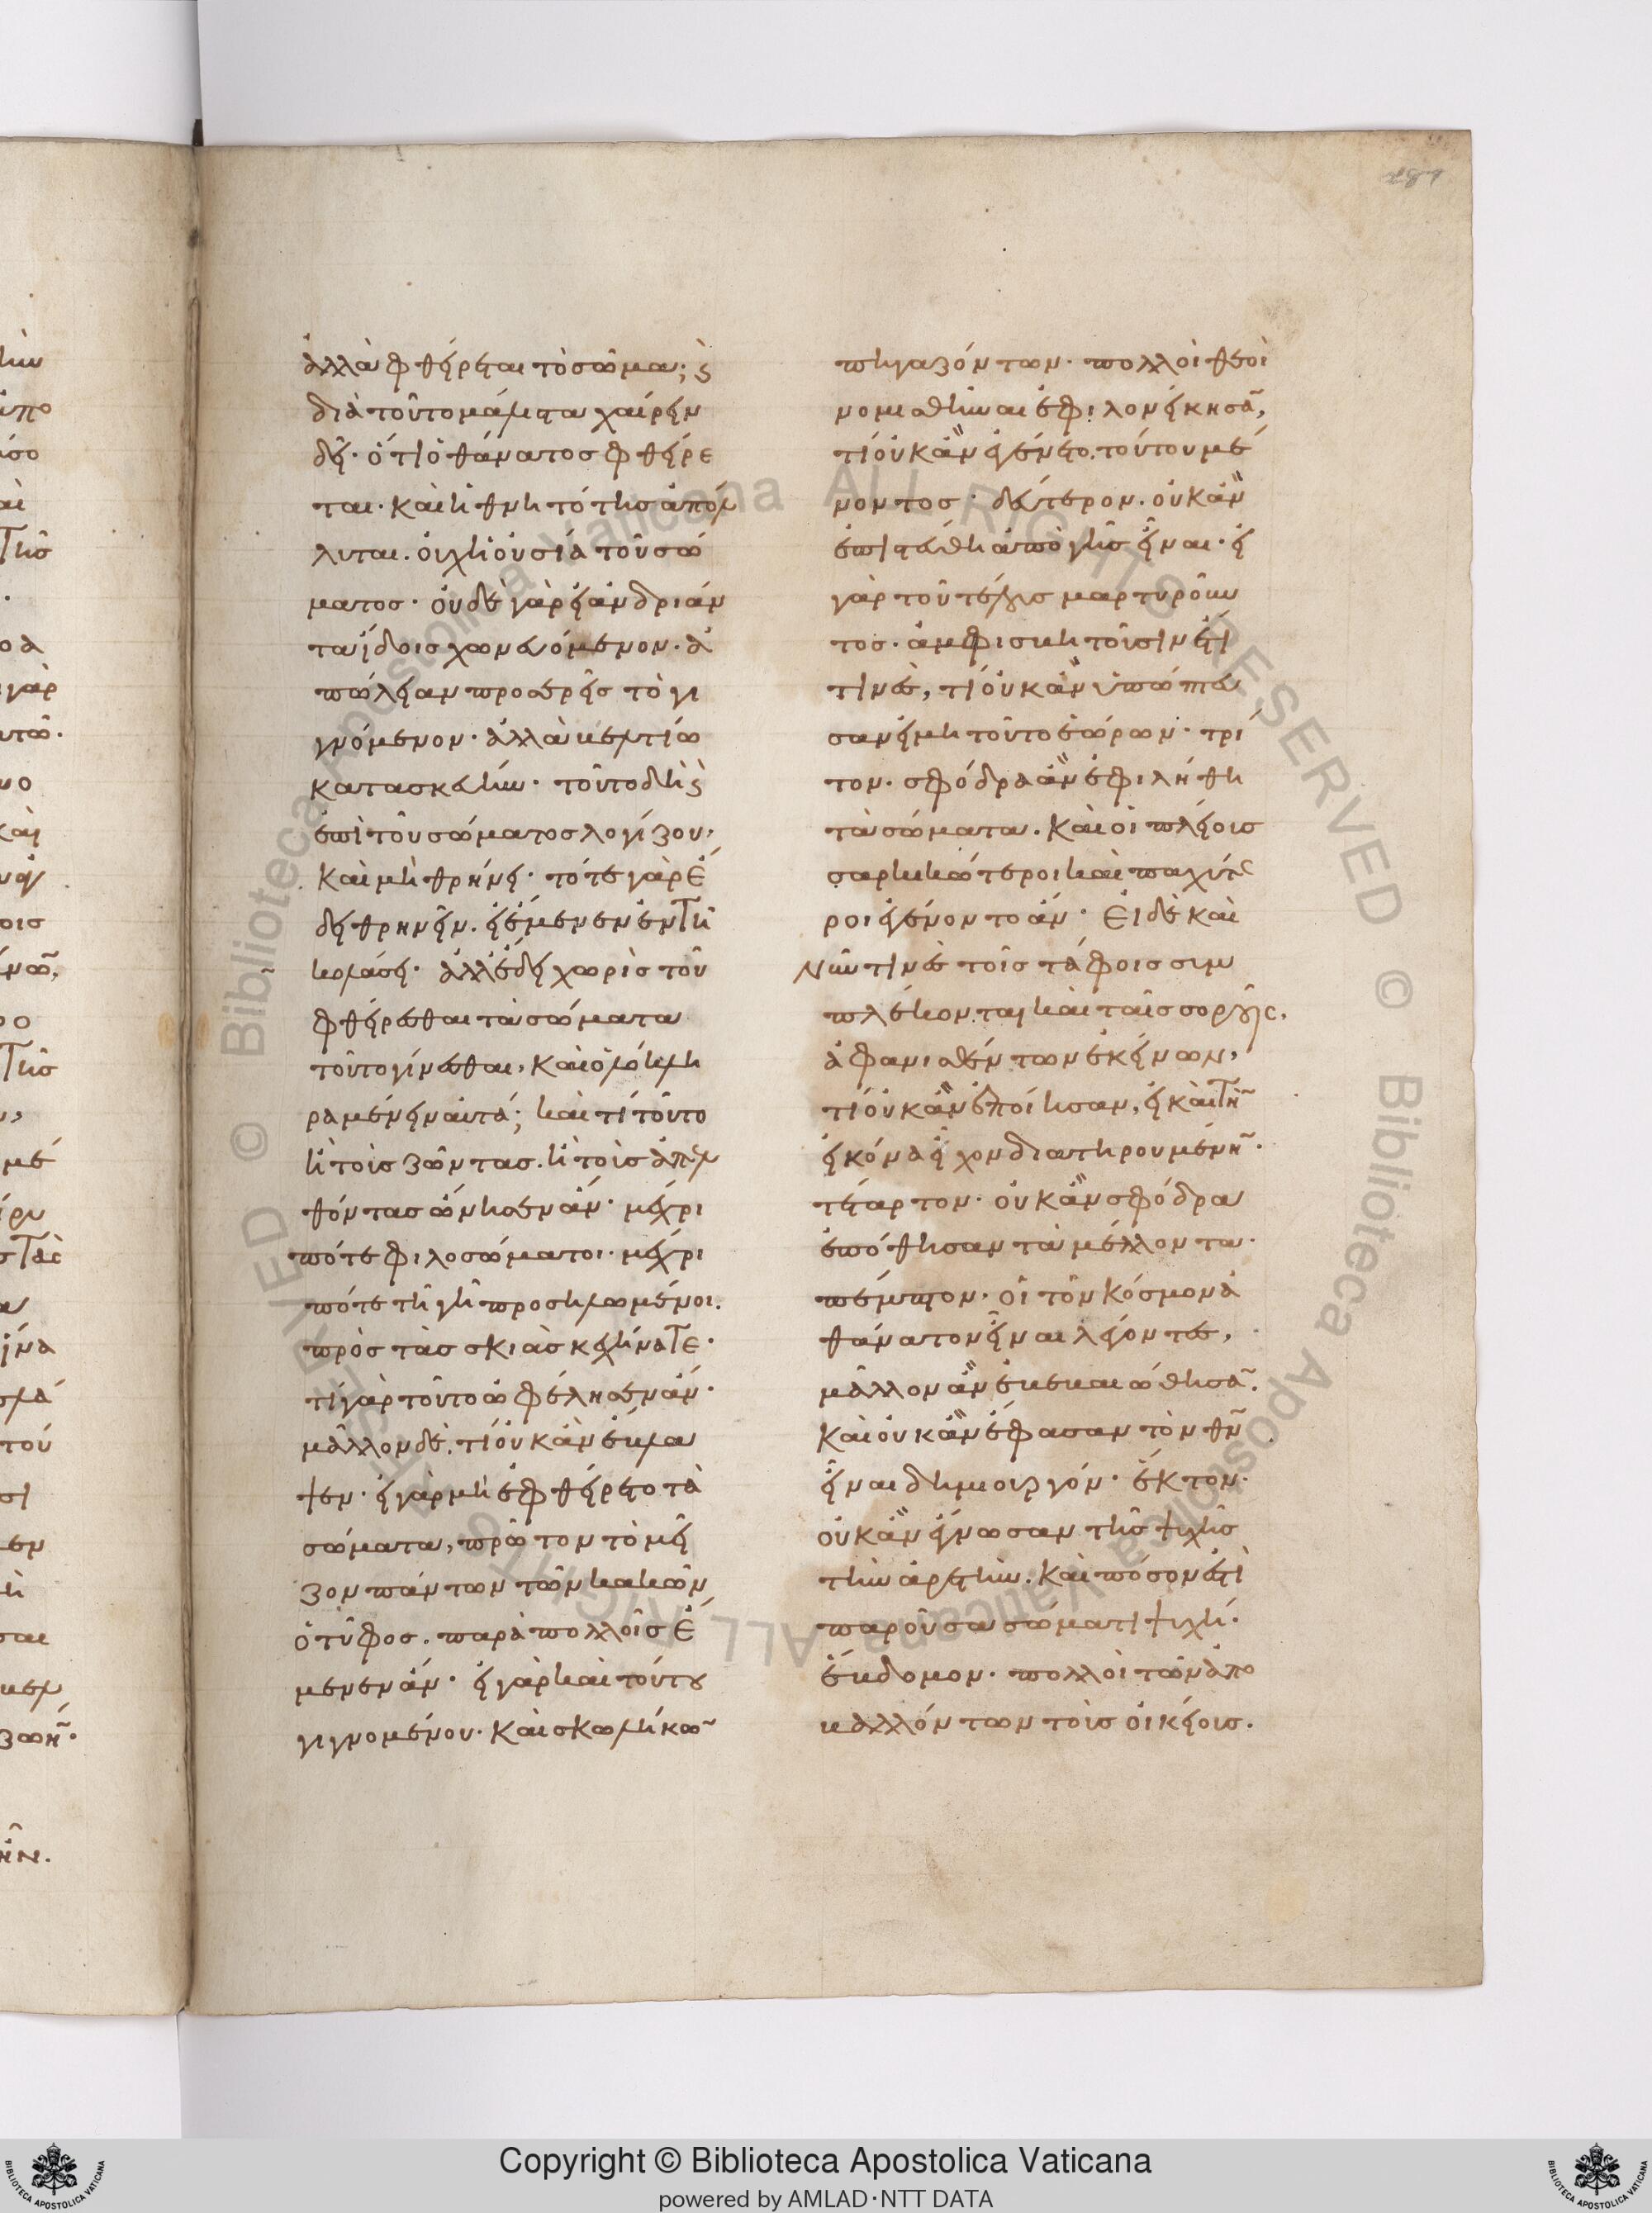 ἀλλὰ φθείρεται τὸ σῶμα; ϛ
διὰ τοῦτο μάλιστα χαίρειν
δεῖ· ὅτι ὁ θάνατος φθείρε
ται· καὶ ἡ θνητότης ἀπόλ
λυται. οὐχὶ ἡ οὐσία τοῦ σώ
ματος· οὐδὲ γὰρ εἰ ἀνδριάν
τα ἴδοις χωνευόμενον· ἀ
πώλειαν προσερεῖς τὸ γι
γνόμενον· ἀλλὰ βελτίω
κατασκευήν· τοῦτο δὴ ϛ
ἐπὶ τοῦ σώματος λογίζου,
καὶ μὴ θρήνει· τότε γὰρ ἔ
δει θρηνεῖν. εἰ ἔμενεν ἐν τῆ
κολάσει· ἀλλ' ἔδει χωρὶς τοῦ
φθείρεσθαι τὰ σώματα
τοῦτο γίνεσθαι, καὶ ὁλόκλη
ρα μένειν αὐτά; καὶ τί τοῦτο
ἢ τοὺς ζῶντας. ἢ τοὺς ἀπελ
θόντας ὤνησεν ἄν· μέχρι
πότε φιλοσώματοι· μέχρι
πότε τῆ γῆ προσηλωμένοι.
πρὸς τὰς σκιὰς κεχήνατε·
τί γὰρ τοῦτο ὠφέλησεν ἄν·
μᾶλλον δὲ. τί οὐκ ἂν ἔβλα
ψεν· εἰ γὰρ μὴ ἐφθείρετο τὰ
σώματα, πρῶτον τὸ μεῖ
ζον πάντων τῶν κακῶν
ὁ τῦφος. παρὰ πολλοῖς ἔ
μενεν ἄν· εἰ γὰρ καὶ τούτου
γιγνομένου· καὶ σκωλήκων
πηγαζόντων· πολλοὶ θεοὶ
νομισθῆναι ἐφιλονείκησαν,
τί οὐκ ἂν ἐγένετο. τούτου μέ
νοντος· δεύτερον. οὐκ ἂν
ἐπιστεύθη ἀπὸ γῆς εἶναι· εἰ
γὰρ τοῦ τέλους μαρτυροῦν
τος· ἀμφισβητοῦσιν ἔτι
τινὲς, τί οὐκ ἂν ὑπώπτευ
σαν εἰ μὴ τοῦτο ἑώρων· τρί
τον. σφόδρα ἂν ἐφιλήθη
τὰ σώματα. καὶ οἱ πλείους
σαρκικώτεροι καὶ παχύτε
ροι ἐγένοντο ἄν· Εἰ δὲ καὶ
νῦν τινὲς τοῖς τάφοις συμ
πλέκονται καὶ ταῖς σοροῖς,
ἀφανισθέντων ἐκείνων,
τί οὐκ ἂν ἐποίησαν, εἰ καὶ τὴν
εἰκόνα εἶχον διατηρουμένην·
τέταρτον· οὐκ ἂν σφόδρα
ἐπόθησαν τὰ μέλλοντα·
πέμπτον· οἱ τὸν κόσμον ἀ
θάνατον εἶναι λέγοντες,
μᾶλλον ἂν ἐβεβαιώθησαν.
καὶ οὐκ ἂν ἔφασαν τὸν θν
εἶναι δημιουργόν· ἕκτον·
οὐκ ἂν ἔγνωσαν τῆς ψυχῆς
τὴν ἀρετήν. καὶ πόσον ἐστὶ
παροῦσα σώματι ψυχή·
ἕβδομον· πολλοὶ τῶν ἀπο
βαλλόντων τοὺς οἰκείους.
Copyright © Biblioteca Apostolica Vaticana
powered by AMLAD·NTT DATA